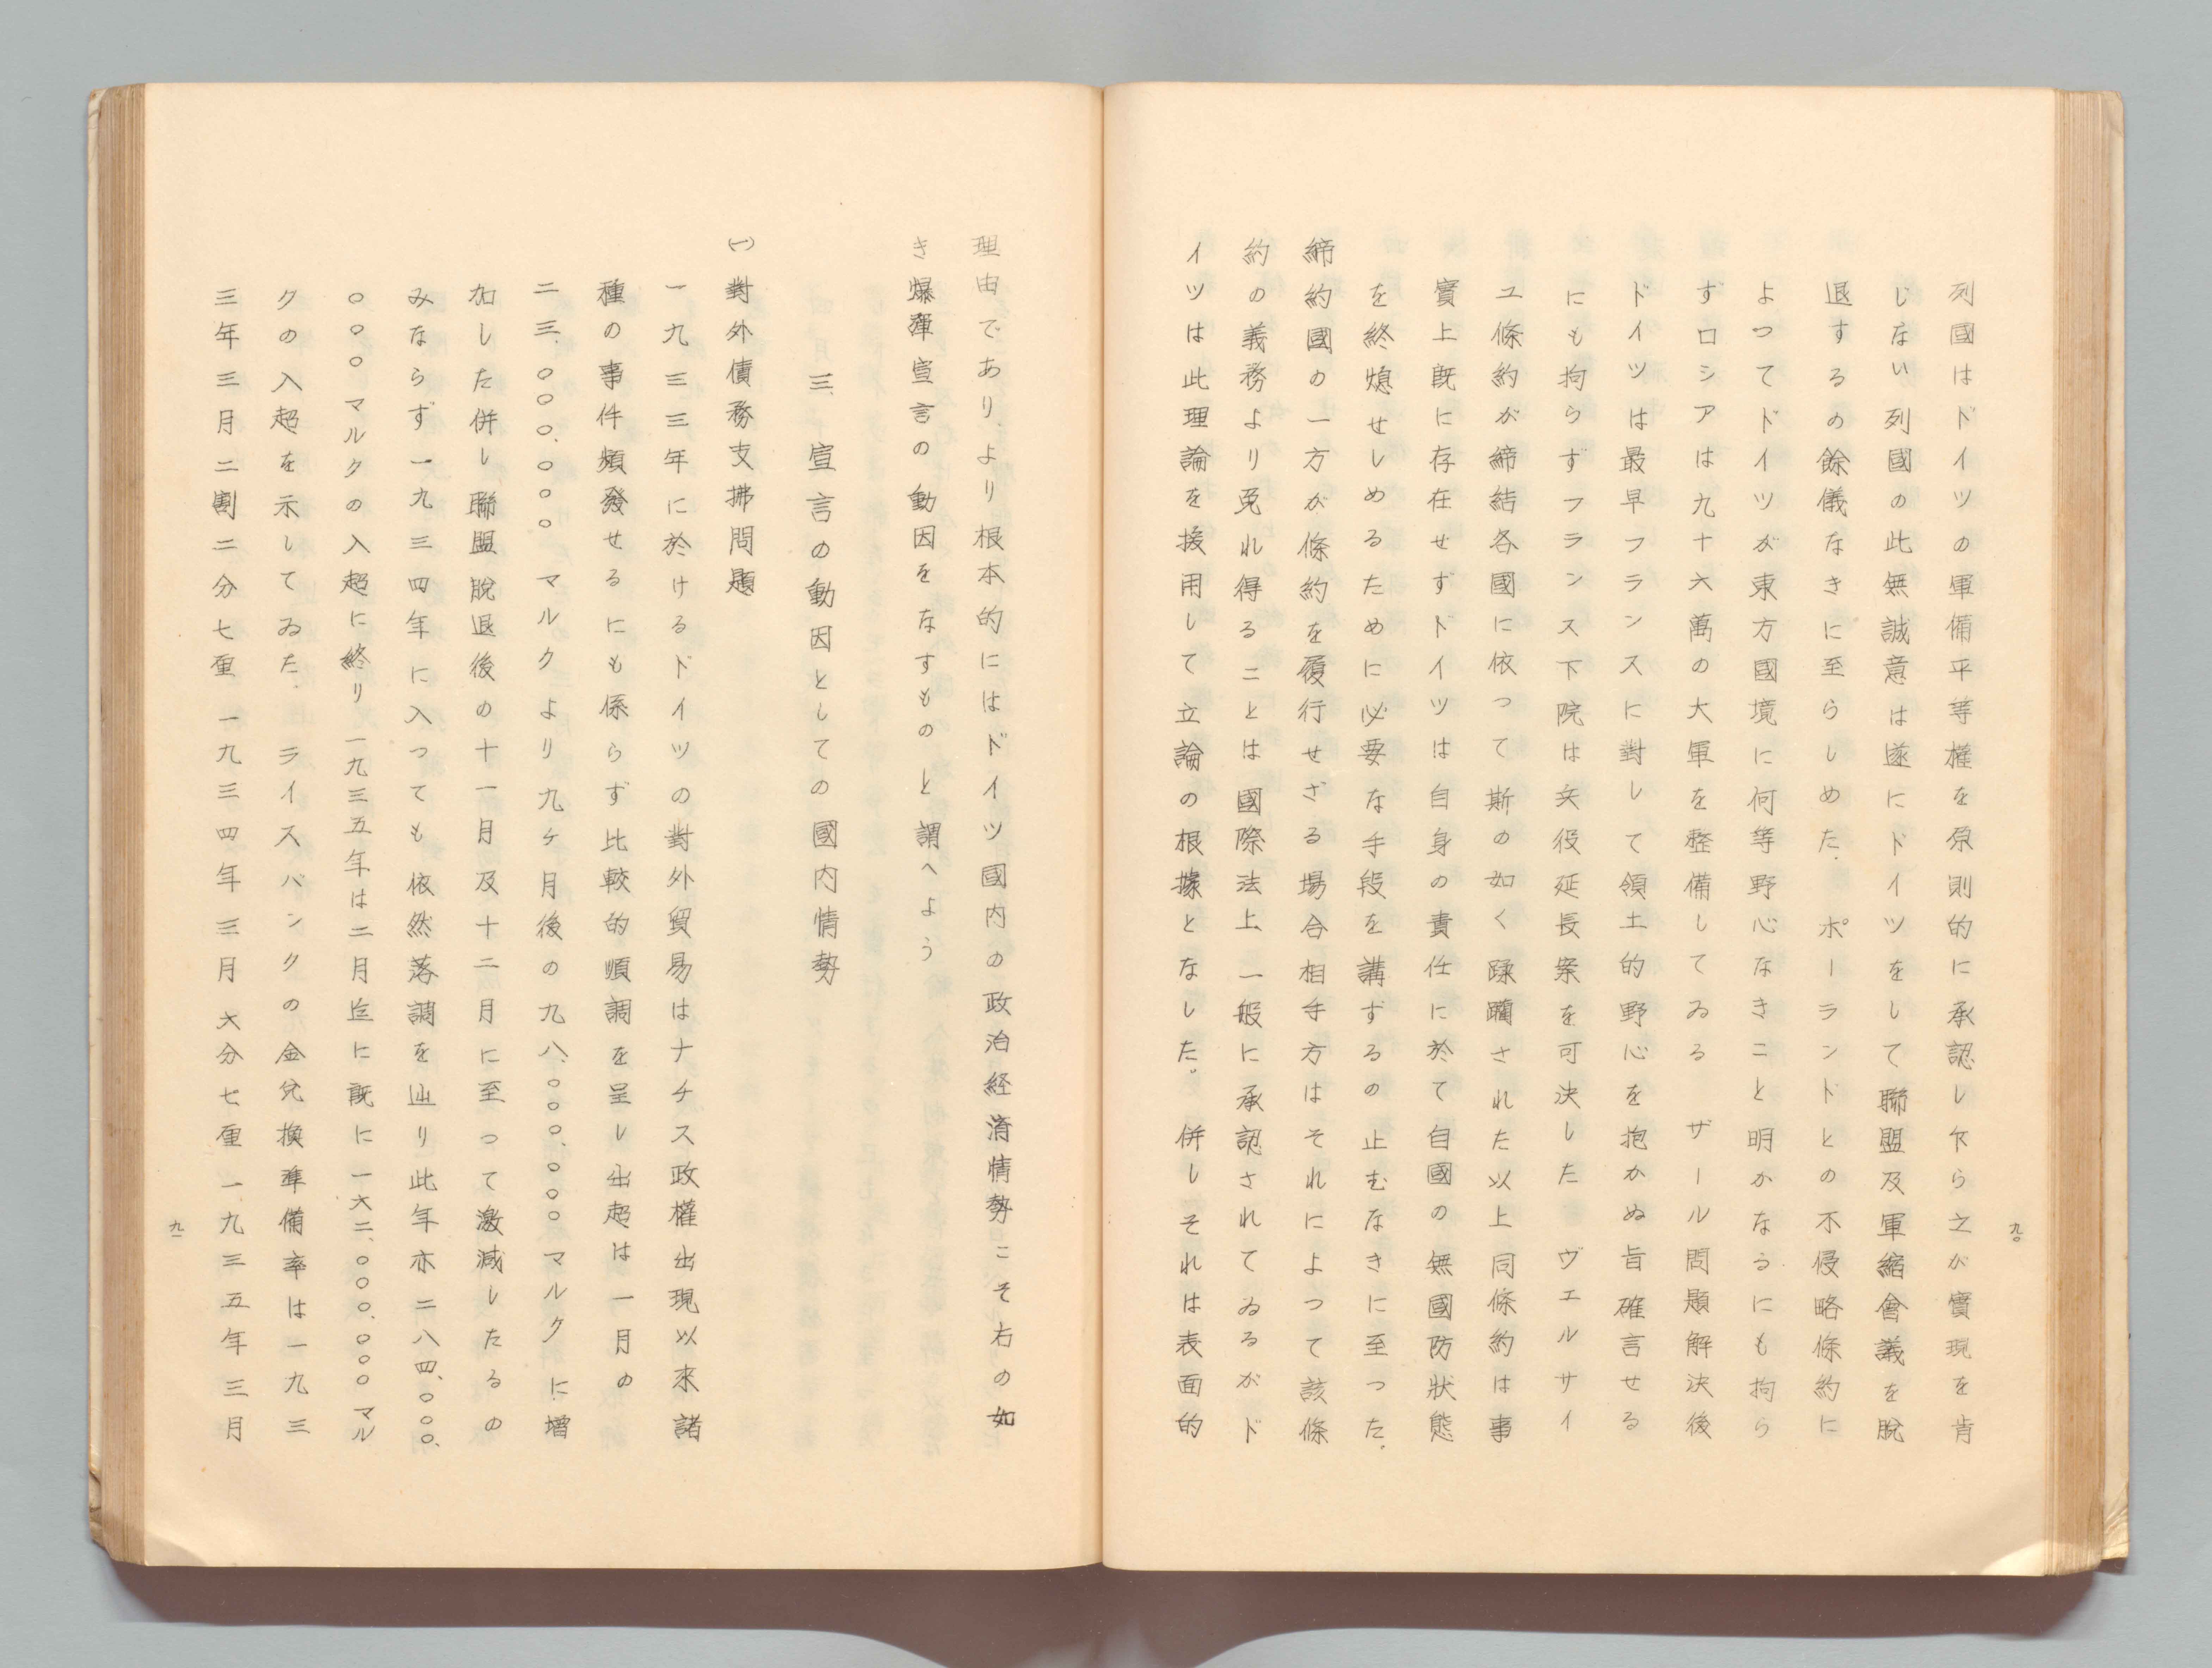 列國はドイツの軍備平等權を原則的に承認し乍ら之が實現を肯
じない列國の此無誠意は遂にドイツをして聯盟及軍縮會議を脫
退するの餘儀なきに至らしめた．ポーランドとの不侵略條約に
よつてドイツが東方國境に何等野心なきこと明かなるにも拘ら
ずロシアは九十六萬の大軍を整備してゐる　ザール問題解決後
ドイツは最早フランスに對して領土的野心を抱かぬ旨確言せる
にも拘らずフランス下院は兵役延長案を可決した　ヴエルサイ
ユ條約が締結各國に依つて斯の如く蹂躙された以上同條約は事
實上旣に存在せずドイツは自身の責任に於て自國の無國防狀態
を終熄せしめるために必要な手段を講ずるの止むなきに至つた．
締約國の一方が條約を履行せざる場合相手方はそれによつて該條
約の義務より免れ得ることは國際法上、一般に承認されてゐるがド
イツは此理論を援用して立論の根據となした。併しそれは表面的
九〇
理由であり、より根本的にはドイツ國内の政治経済情勢こそ右の如
き爆彈宣言の動因をなすものと謂へよう
三、宣言の動因としての國内情勢
(一)對外債務支拂問題
一九三三年に於けるドイツの對外貿易はナチス政權出現以來諸
種の事件頻發せるにも係らず比較的順調を呈し出超は一月の
二三、〇〇〇、〇〇〇マルクより九ヶ月後の九八、〇〇〇、〇〇〇マルクに增
加した併し聯盟脫退後の十一月及十二月に至つて激減したるの
みならず一九三四年に入つても依然落調を辿り此年亦二八四、〇〇〇、
〇〇〇マルクの入超に終り一九三五年は二月迄に旣に一六二、〇〇〇、〇〇〇マル
クの入超を示してゐた．ライスバンクの金兌換準備率は一九三
三年三月二割二分七厘　一九三四年三月六分七厘一九三五年三月
九一